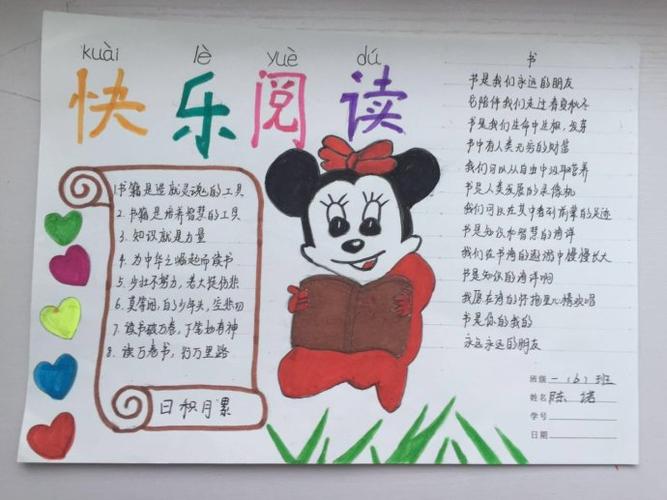 kuài lè yuè dú
快乐阅读
1.书籍是造就灵魂的工具
2.书籍是培养智慧的工具
3.知识就是力量
4.为中华之崛起而读书
5.少壮不努力,老大徒伤悲
6.莫等闲,白了少年头,空悲切
7.读书破万卷,下笔如有神
8.读万卷书,行万里路
日积月累
书
书是我们永远的朋友
它陪伴我们走过春夏秋冬
书是我们生命中
书中有人类无穷的财富
我们可以从自由中汲取营养
书是人类发展的录像机
我们可以在其中看到前辈的足迹
书是知识和智慧的海洋
我们在书海的遨游中慢慢长大
书是知识的海洋啊
我愿在海的怀抱里 歌唱
书是你的我的
永远永远的朋友
班级 一(6)班
姓名 陈
学号
日期